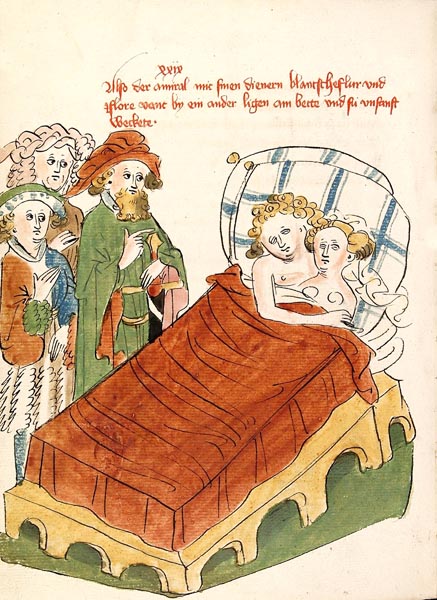 xxix
Also der amiral mit sinen dienern blantscheflur vnd
flore vant by ein ander ligen am bette vnd si vnsanft
Weckete.